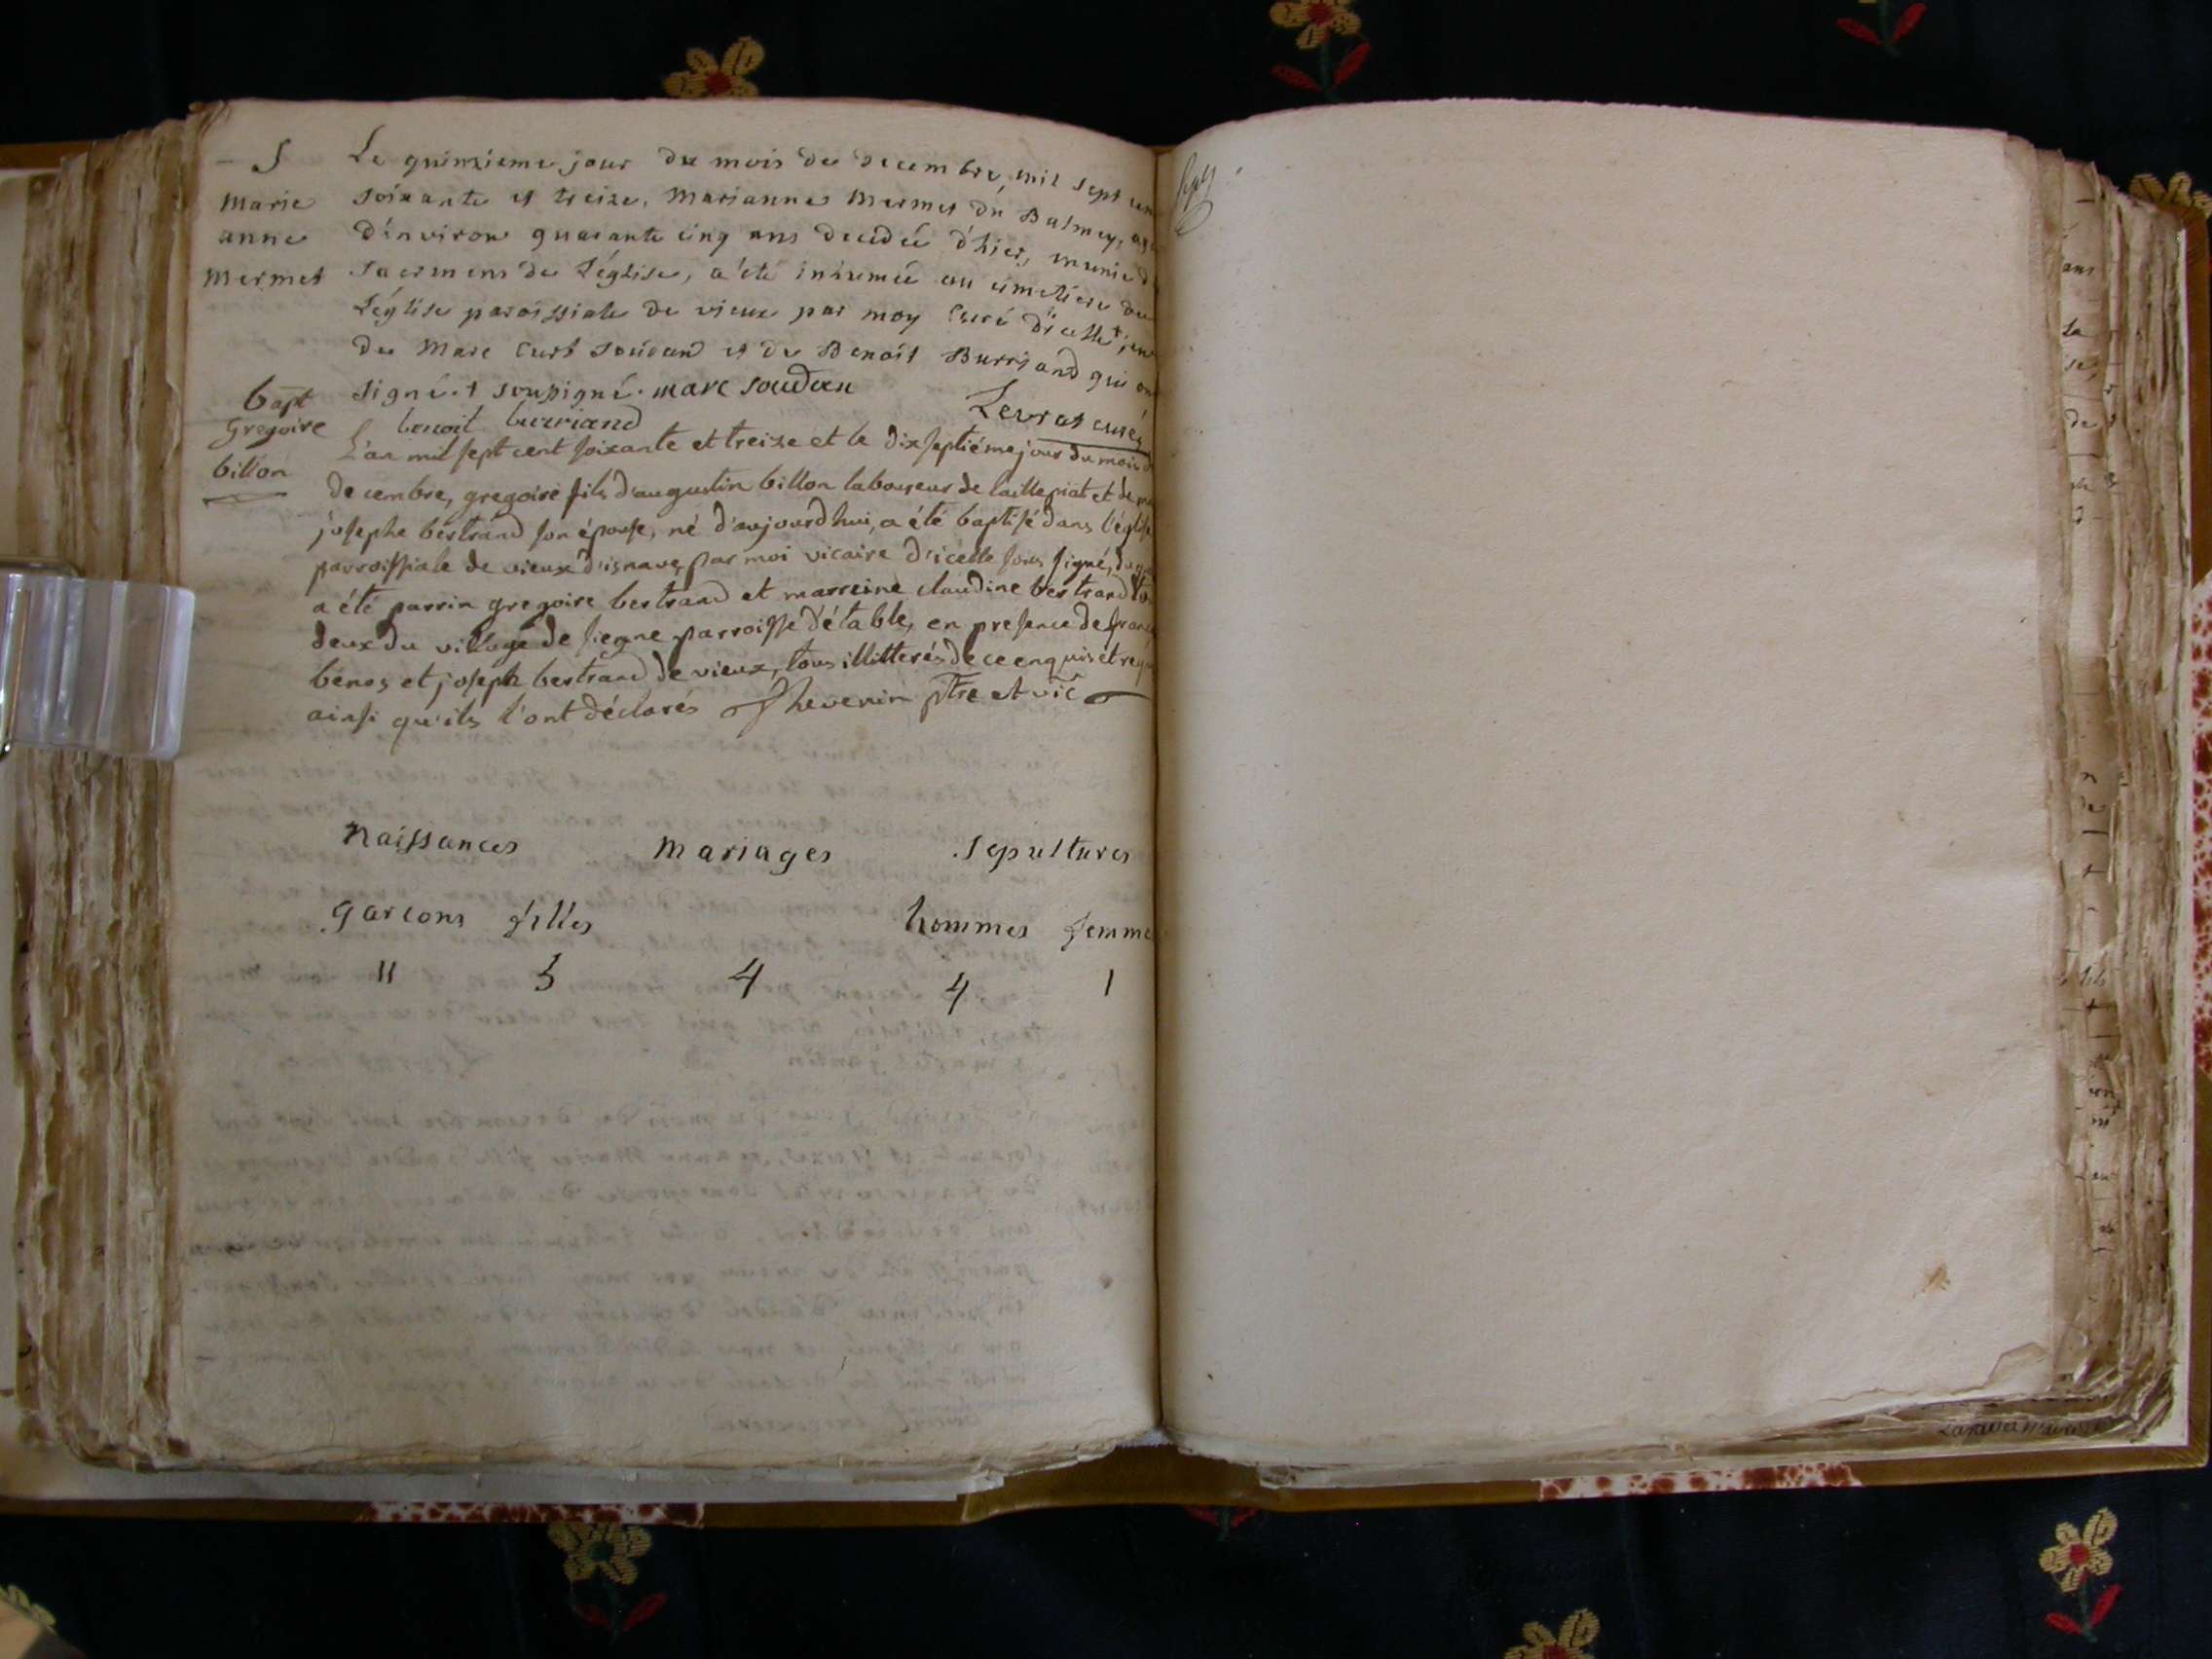 S
Marie
anne
Mermet
Le quinzieme jour du mois de decembre, mil sept cen
soixante et treize, Marianne Mermet du Balmey, agé
d'environ quarante cinq ans decedeé d'hier, munie d
sacremens de L'église, a été inhumeé au cimetiere de
L'église paroissiale de vieux par moy Curé d'icelle, en
de Marc Curt Soudan et de Benoit Burriand qui on
signé et soussigné. marc soudan
benoit burriand
Levrat curé
bapt
Gregoire
billon
L'an mil sept cent soixante et treize et le dix septiéme jour du mois d
decembre, gregoire fils d'augustin billon laboureur de et de
josephe bertrand son épouse, né d'aujourd'hui, a été baptisé dans l'église
parroissiale de vieux d'isnave par moi vicaire d'icelle sous signé,
a été parrin gregoire bertrand et marreine claudine bertrand
deux du village de parroisse d'étable, en presence de
benos et joseph bertrand de vieux, tous illitterés de ce enquis et
ainsi qu'ils l'ont déclarés Thevenin ptre et vic
Naissances Mariages Sepultures
garcons filles hommes femme
11 5 4 4 1